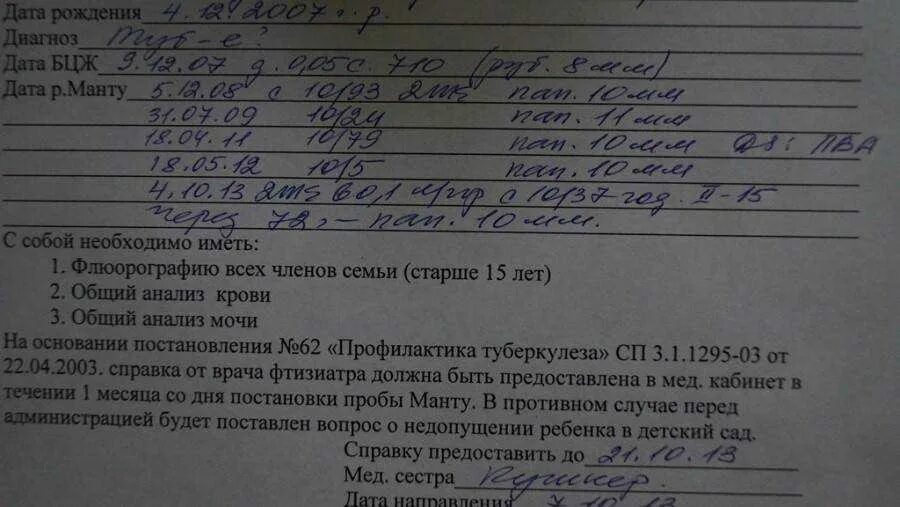 Дата рождения 4.12.2007 г.р.
Диагноз Туб-с?
Дата БЦЖ 9.12.07 д. 0,05 с. 710 (руб. 8 мм)
Дата р.Манту 5.12.08 с 10/93 2ТЕ пап. 10 мм
31.07.09 10/24 пап. 11 мм
18.04.11 10/79 пап. 10 мм DS: ПВА
18.05.12 10/5 пап. 10 мм
4.10.13 2ТЕ в 0,1 с 10/37 год. II-15
через 72 – пап. 10 мм.
С собой необходимо иметь:
1. Флюорографию всех членов семьи (старше 15 лет)
2. Общий анализ крови
3. Общий анализ мочи
На основании постановления №62 «Профилактика туберкулеза» СП 3.1.1295-03 от
22.04.2003. справка от врача фтизиатра должна быть предоставлена в мед. кабинет в
течении 1 месяца со дня постановки пробы Манту. В противном случае перед
администрацией будет поставлен вопрос о недопущении ребенка в детский сад.
Справку предоставить до 21.10.13
Мед. сестра
Дата направления 7.10.13